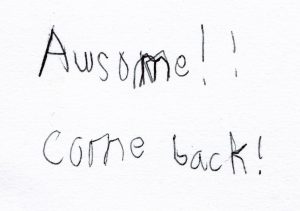 Awsome!!
Come back!